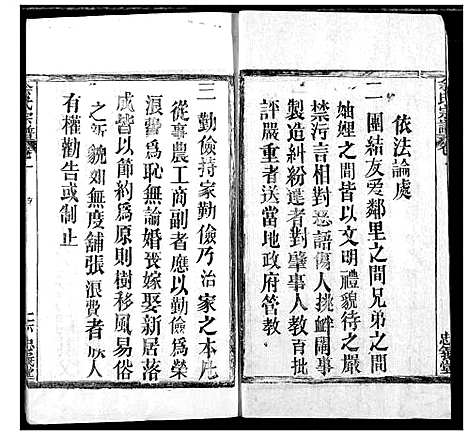 依法論處
二 團結友爱鄰里之間兄弟之間
妯娌之間皆以文明禮貌待之嚴
禁污言相對惡語傷人挑衅鬧事
製造糾紛違者對肇事人教育批
評嚴重者送當地政府管教
三 勤儉持家勤儉乃治家之本凡
從事農工商副者應以勤儉爲榮
浪費爲恥無論婚喪嫁娶新居落
成皆以節約爲原則樹移風易俗
之新貌如無度舖張浪費者族人
有權勸告或制止
氏宗譜 卷一
忠義堂
氏宗譜